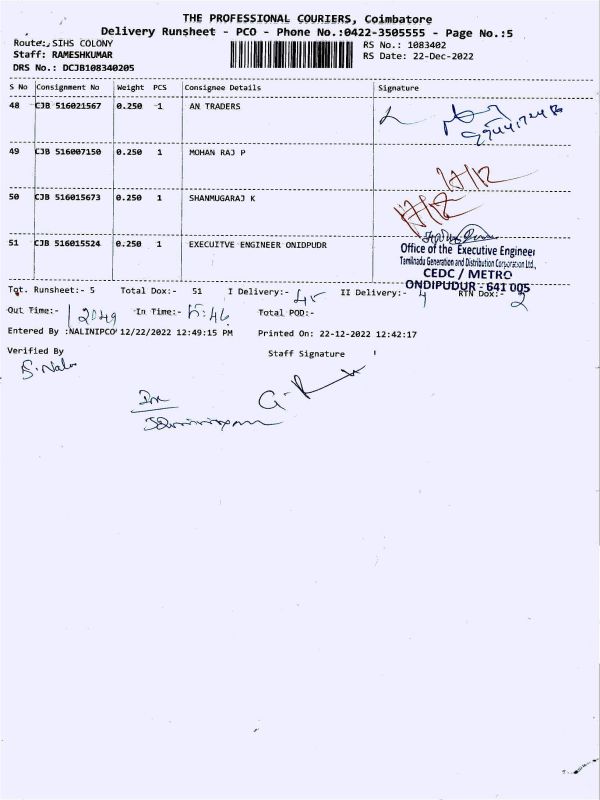 THE PROFESSIONAL COURIERS, Coimbatore
Delivery Runsheet - PCO - Phone No.:0422-3505555 - Page No.:5
Route:, SIHS COLONY
RS No.: 1083402
Staff: RAMESHKUMAR
RS Date: 22-Dec-2022
DRS No.: DCJB108340205
S No Consignment No Weight PCS Consignee Details Signature
48 CJB 516021567 0.250 1 AN TRADERS
49 CJB 516007150 0.250 1 MOHAN RAJ P
50 CJB 516015673 0.250 1 SHANMUGARAJ K
51 CJB 516015524 0.250 1 EXECUITVE ENGINEER ONIDPUDR
Office of the Executive Engineer
Tamilnadu Generation and Distribution Corporation Ltd.,
CEDC / METRO
ONDIPUDUR - 641 005
Tot. Runsheet:- 5 Total Dox:- 51 I Delivery:- 45 II Delivery:- 4 RTN Dox:- 2
Out Time:- In Time:- 15:46 Total POD:-
Entered By :NALINIPCO 12/22/2022 12:49:15 PM Printed On: 22-12-2022 12:42:17
Verified By Staff Signature